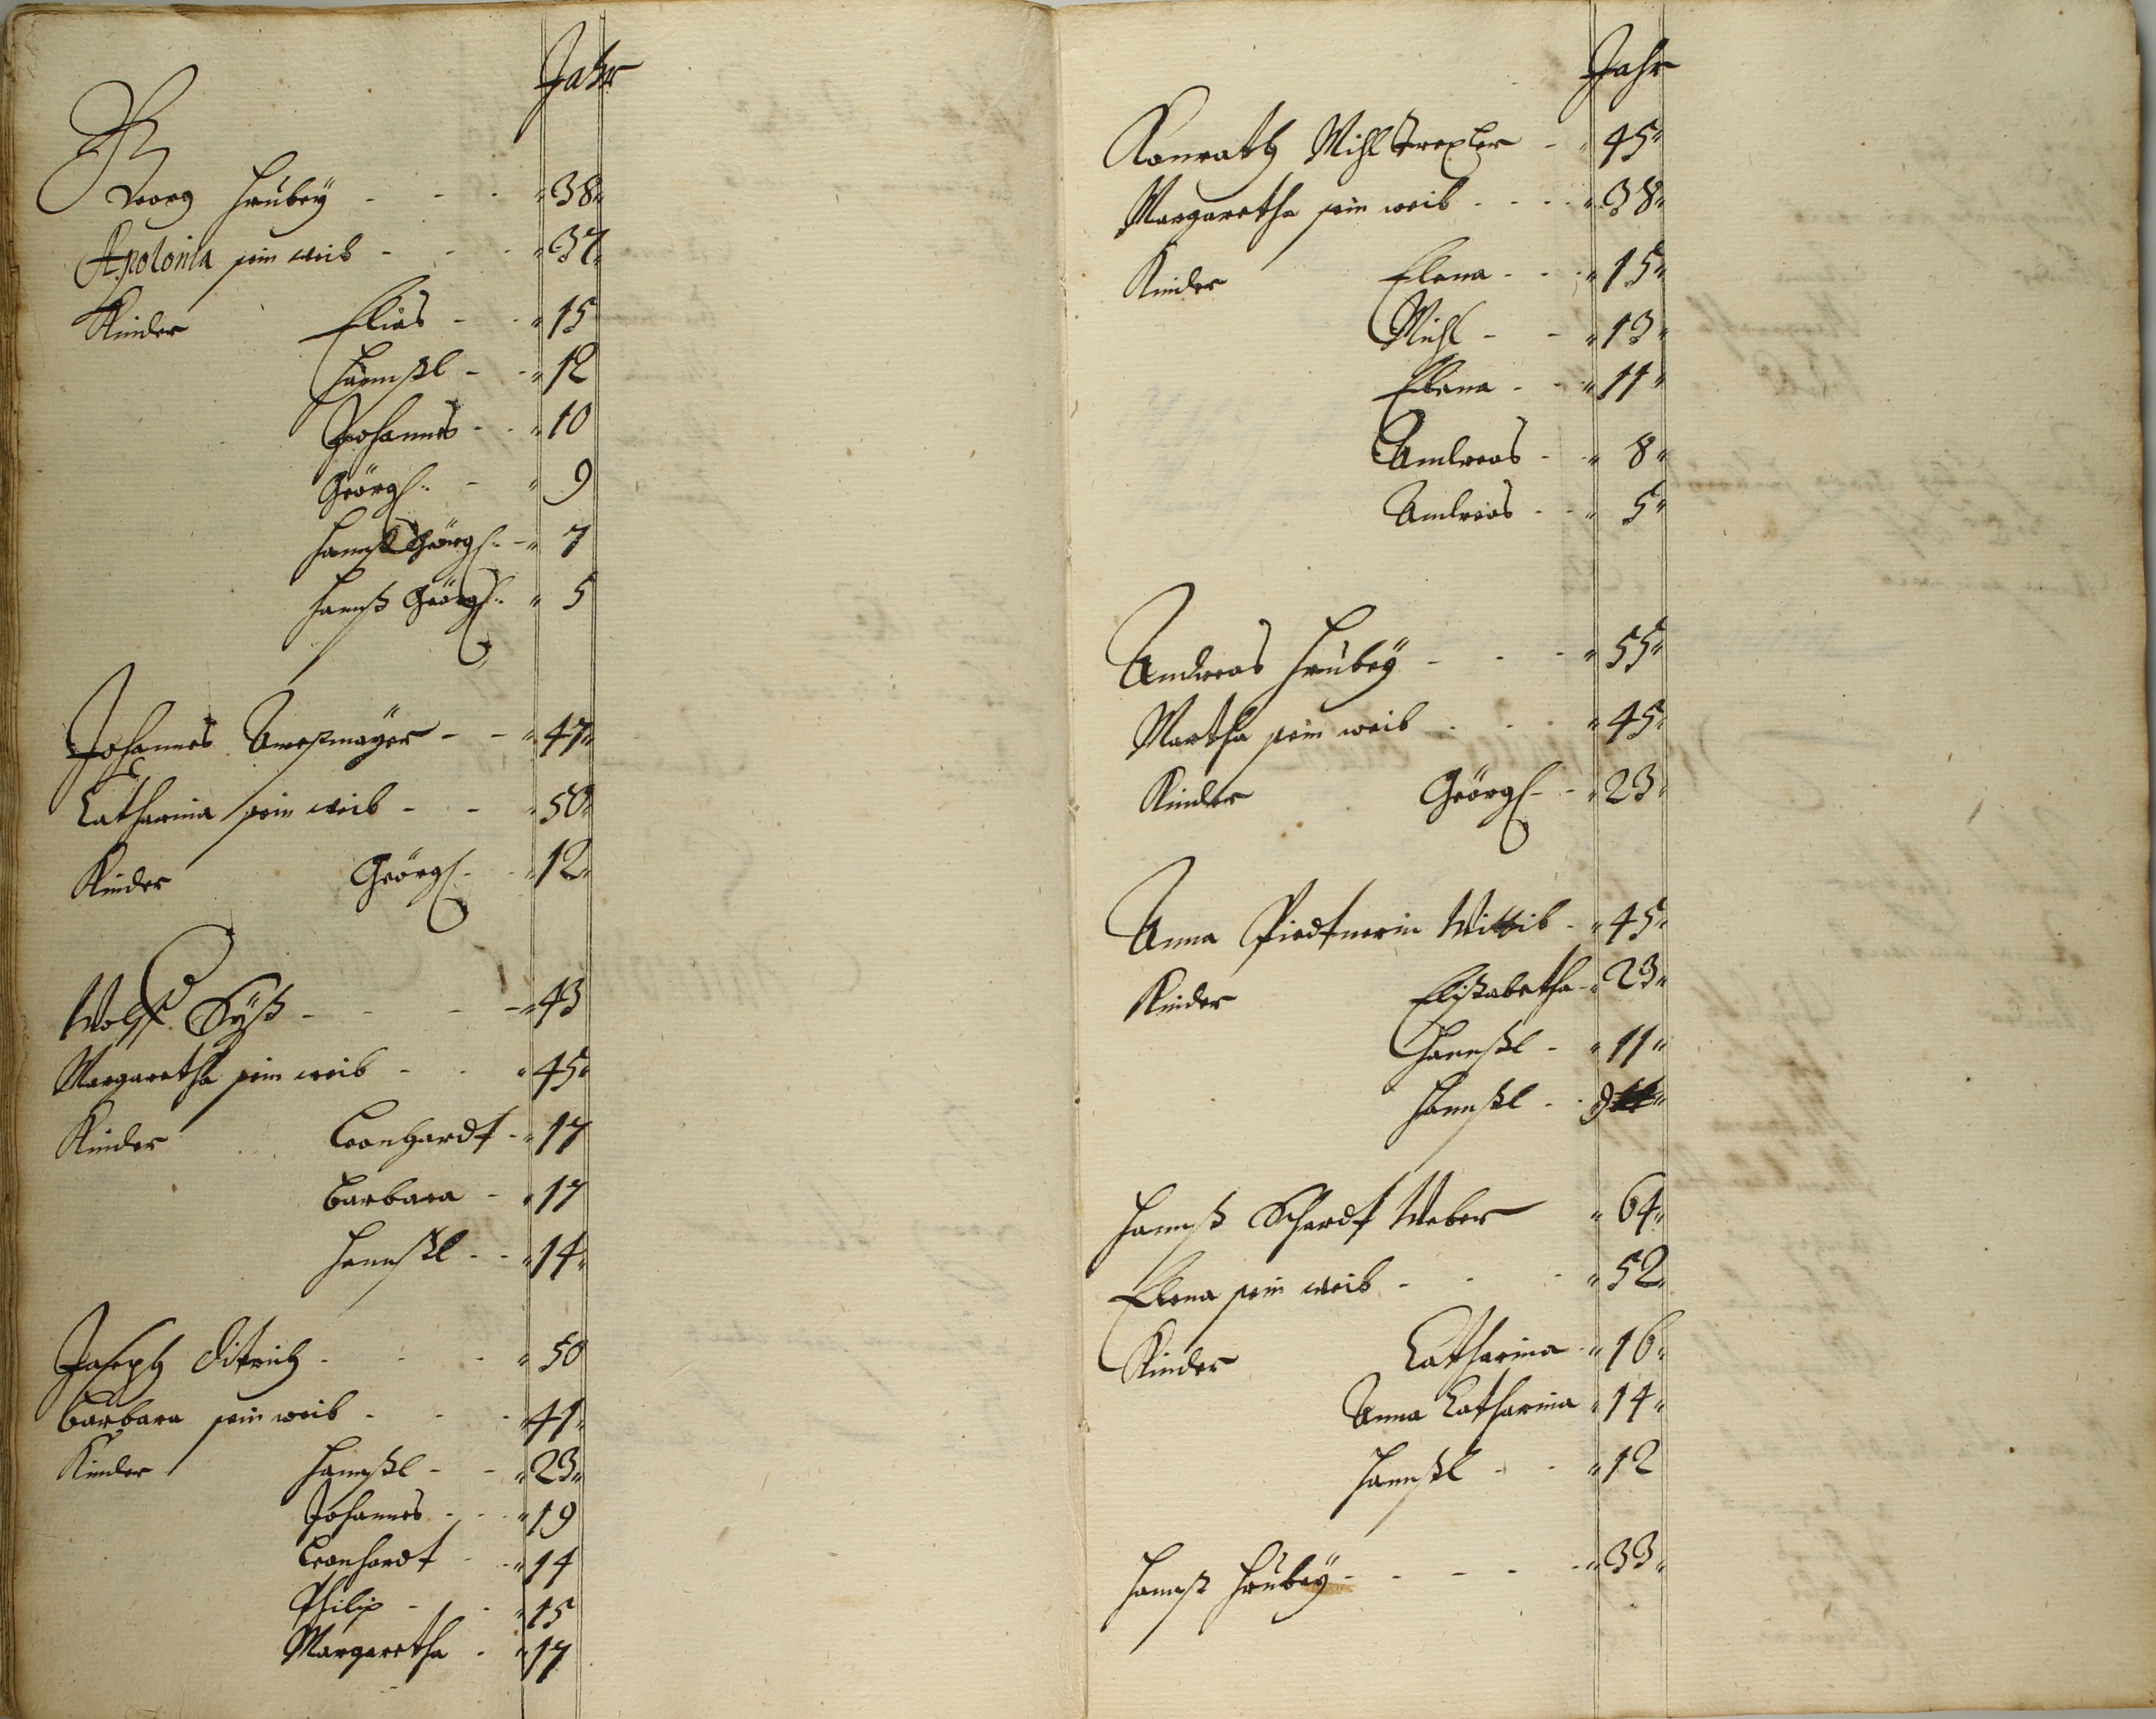 Jahr
Georg Hrubey - - - 38
Apolonia sein weib - - - 37
Kinder Elias - - 15
Hannßl - - 12
Johannes - - 10
Geörgl - - 9
Hannß Geörgl - 7
Hannß Geörgl 5
Johannes - - 47
Catharina sein weib - - 50
Kinder Geörgl - - 12
Wolff Syß - - - 43
Margaretha sein weib - - 45
Kinder Leonhardt - 17
Barbara - 17
Hannßl - - 14
Joseph Ditrich - - - 50
Barbara sein weib - - - 41
Kinder Hannßl - - 23
Johannes - - 19
Leonhardt - - 14
Philip - - 15
Margaretha - 17
Jahr
Konrath Mihl - 45
Margaretha sein weib - - - 38
Kinder Elena - - - 15
Mihl - - 13
Elena - - 11
Andreas - - 8
Andreas - - 5
Andreas Hrubey - - - 55
Martha sein weib - - - 45
Kinder Geörgl - - 23
Anna Piedtnerin Wittib - 45
Kinder Elisabetha - 23
Hannßl - 11
Hannßl - - 9
Hannß Schardt Weber 64
Elena sein weib - - - 52
Kinder Catharina - 16
Anna Catharina 14
Hannßl - - 12
Hannß Hrubey - - - - 33